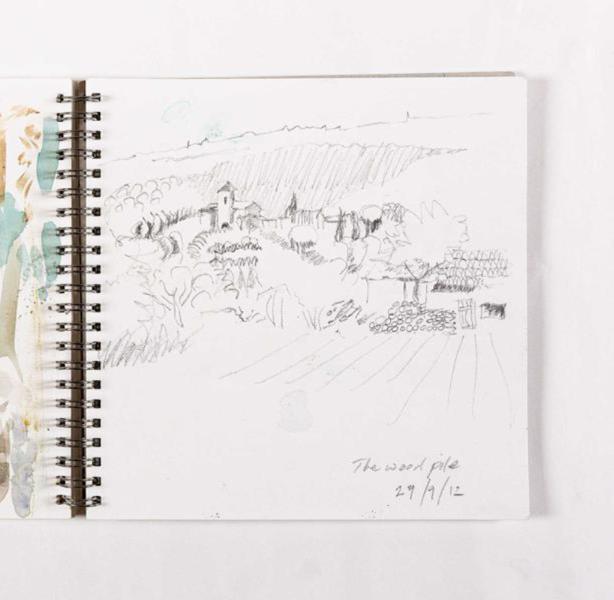 The wood pile
29/9/12